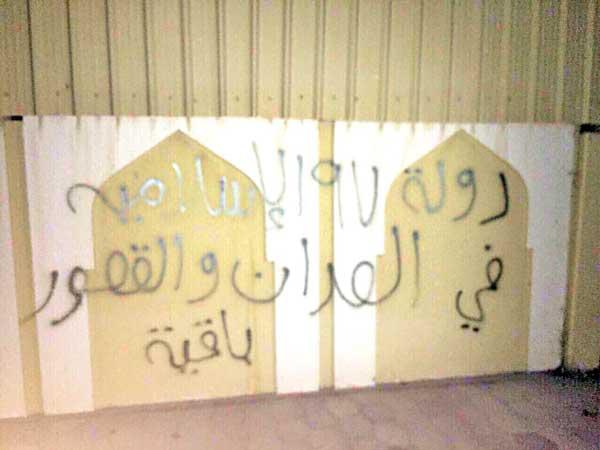 دولة ٩٧ الإسلاميه
في العدان والقصور
باقية